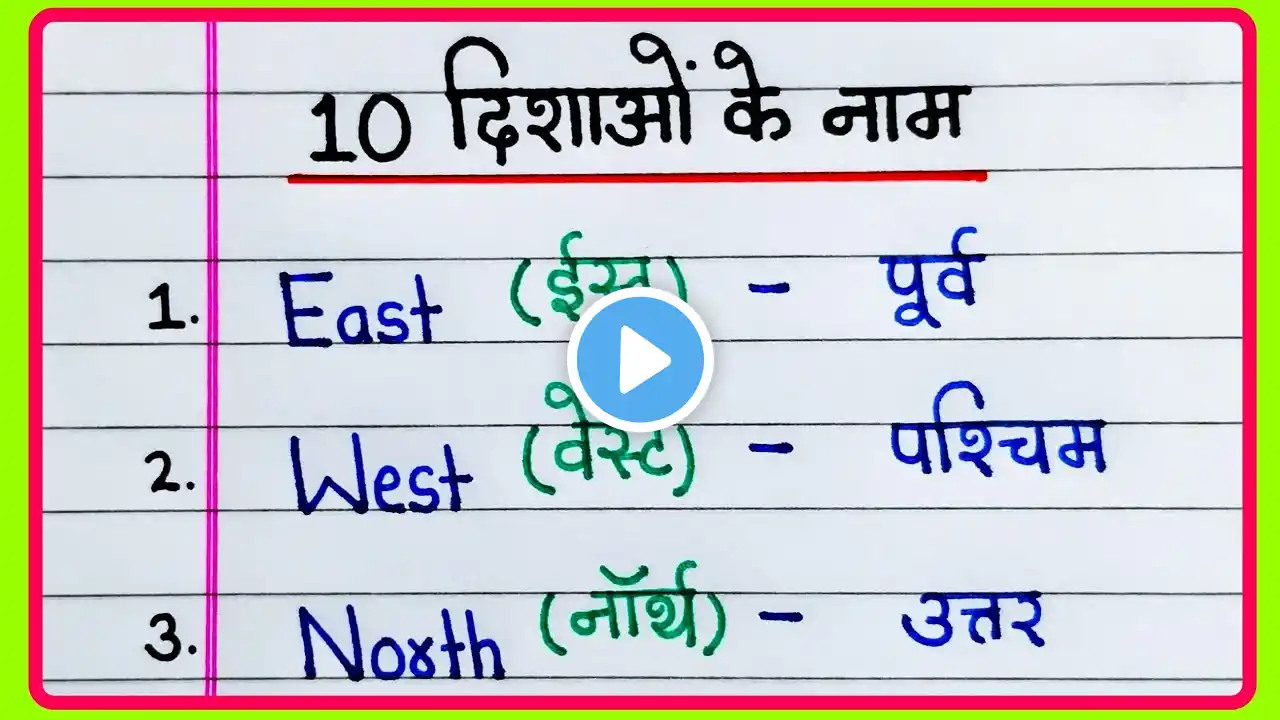 10 दिशाओं के नाम
1. East (ईस्ट) - पूर्व
2. West (वेस्ट) - पश्चिम
3. North (नॉर्थ) - उत्तर